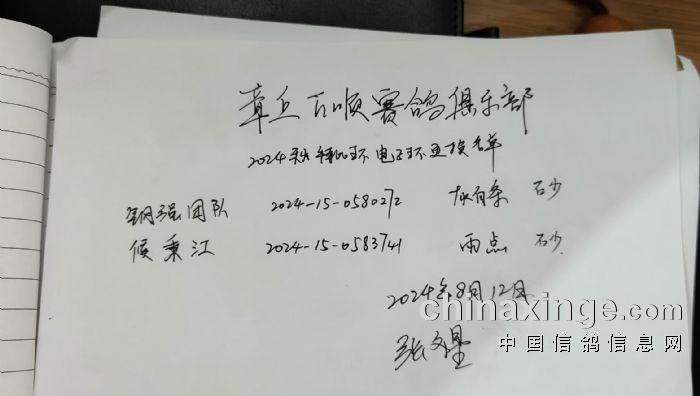 章丘百顺赛鸽俱乐部
2024秋 电子环更换名单
钢强团队 2024-15-0580272 灰白条 石少
候秉江 2024-15-0583741 雨点 石少
2024年8月12日
chinaxinge.com
张文星
中国信鸽信息网